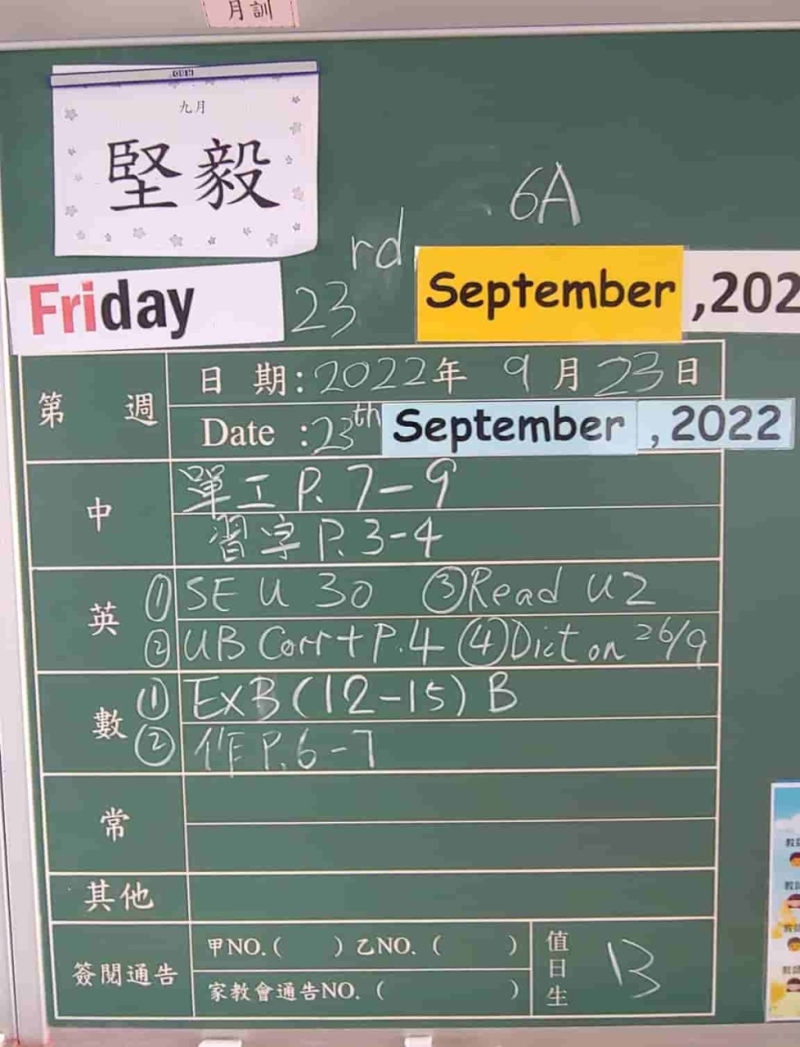 月訓
九月
堅毅
6A
Friday 23 rd September ,202
第 週
日 期:2022年 9月23日
Date :23th September , 2022
中
單工 P. 7-9
習字 P. 3-4
英
① SE U 30 ③ Read U2
② UB Corr + P.4 ④ Dict on 26/9
數
① Ex B (12-15) B
② 作 P. 6-7
常
其他
簽閱通告
甲NO.( ) 乙NO. ( )
家教會通告NO. ( )
值日生 13